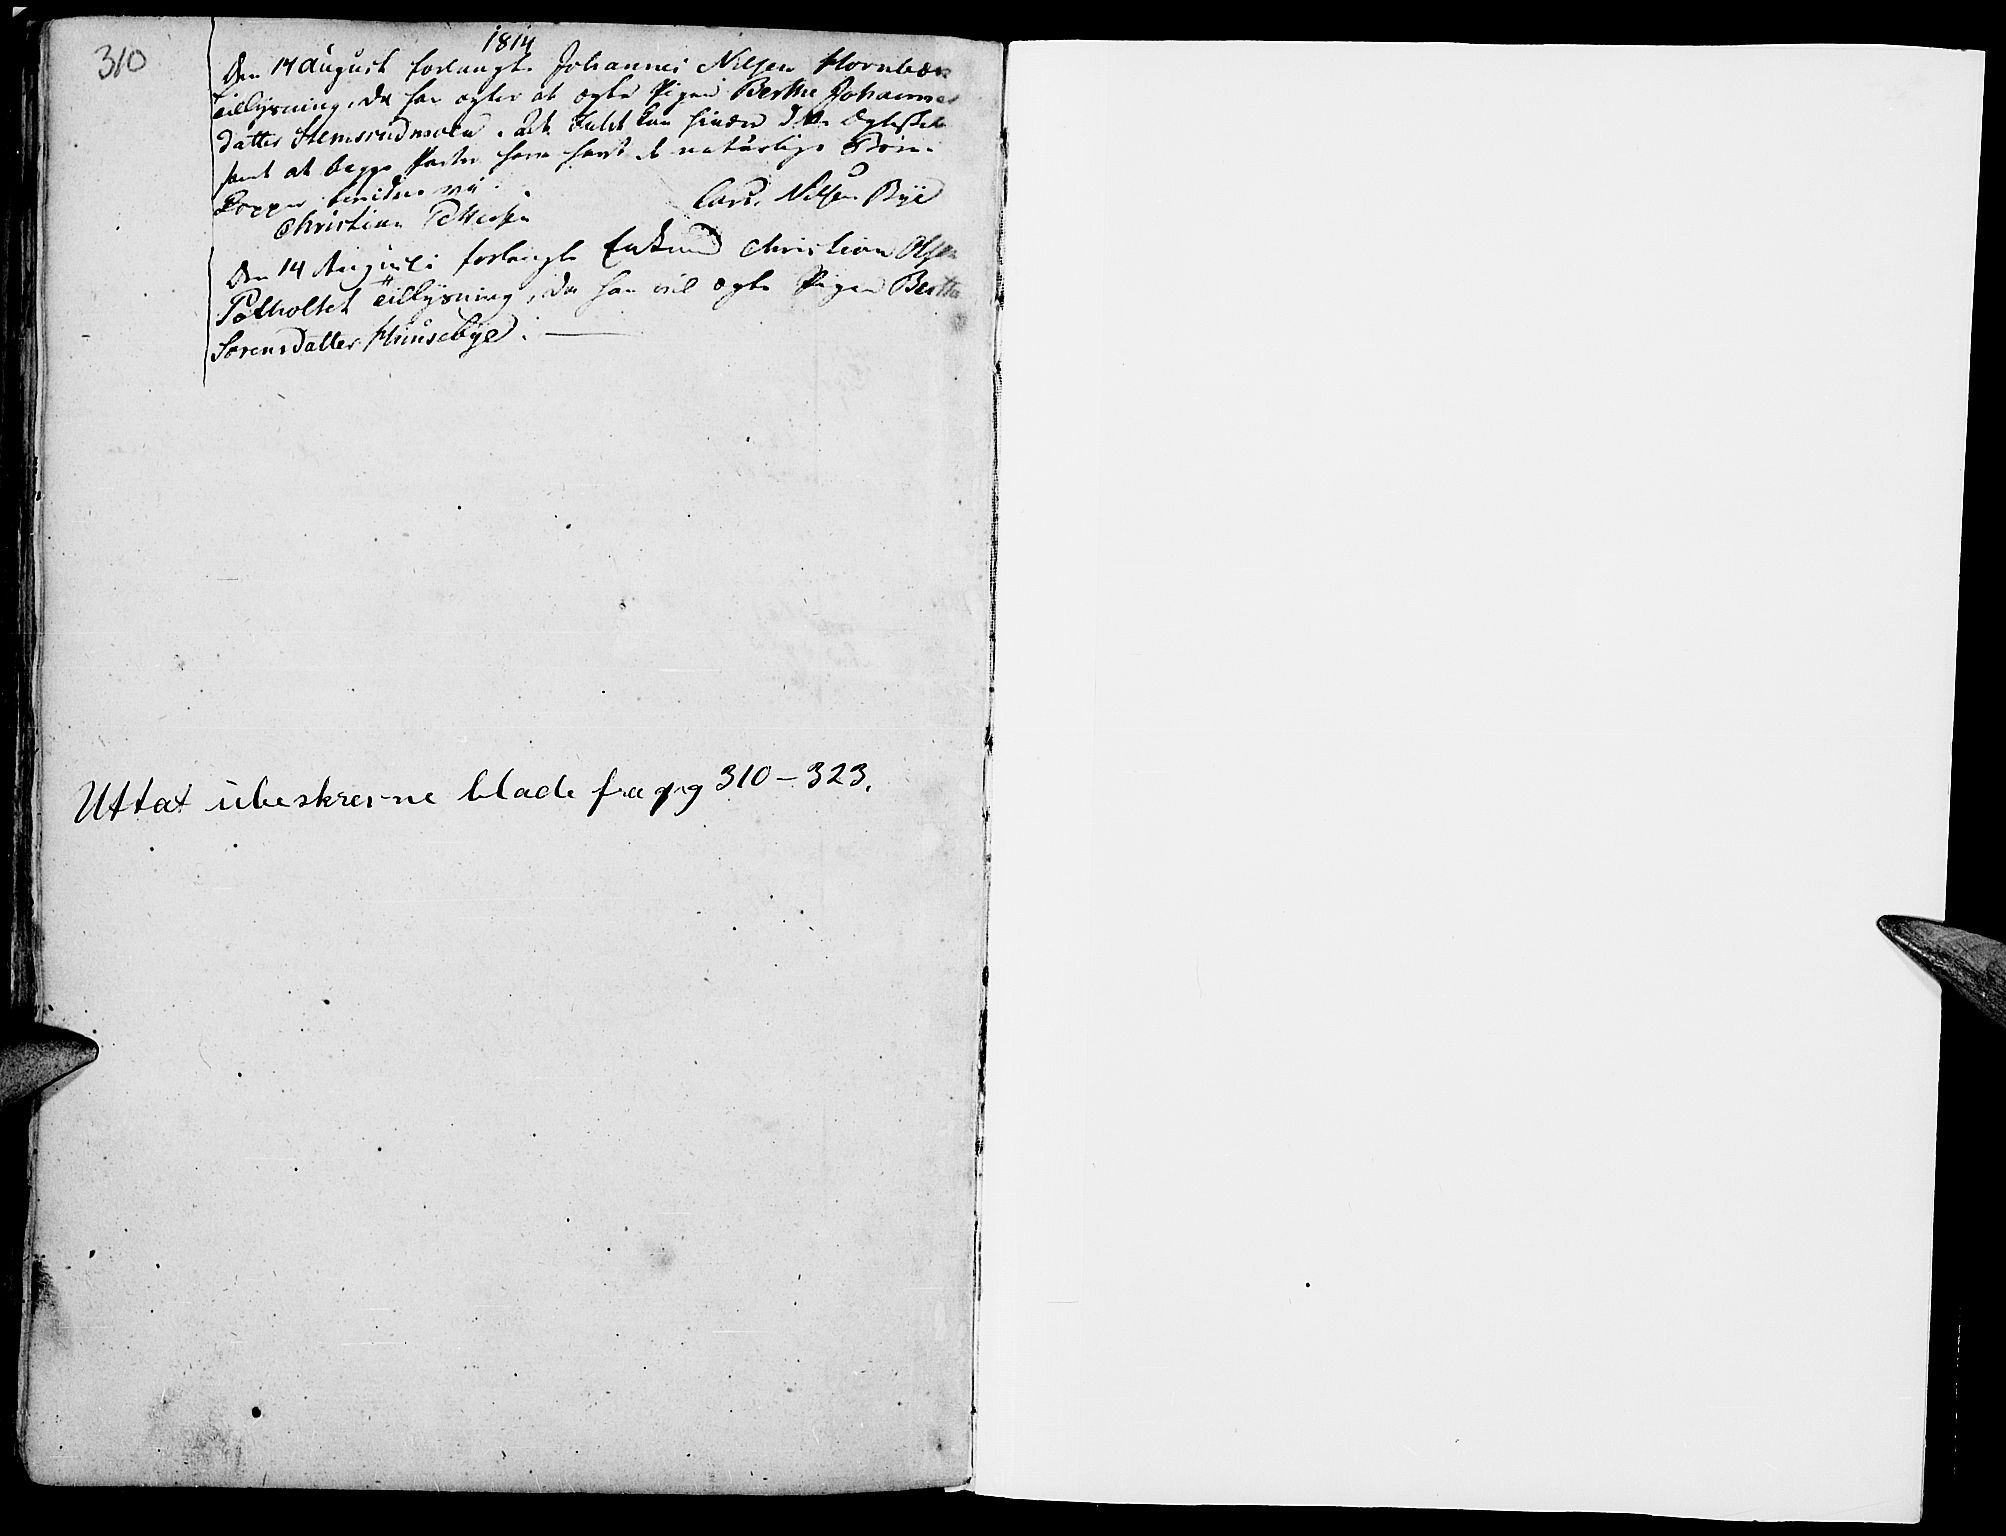 310
1814
Den 14 August forlangte Johannes Nilsen Hornbæk
Tillysning, da han agter at ægte Pigen Berthe Johannes
datter Stemsrudmoen. At Intet kan hindre dette Ægteskab
samt at begge Parter have havt de naturlige Børne
kopper, bevidne vi
Christian Pettersen Nilsen Bye
Den 14 August forlangte Enkemand Christian Olsen
Pótholtet Tillysning, da han vil ægte Pigen Berthe
Sorensdatter Huusebye.
Uttat ubeskrevne blade fra pg 310-323.